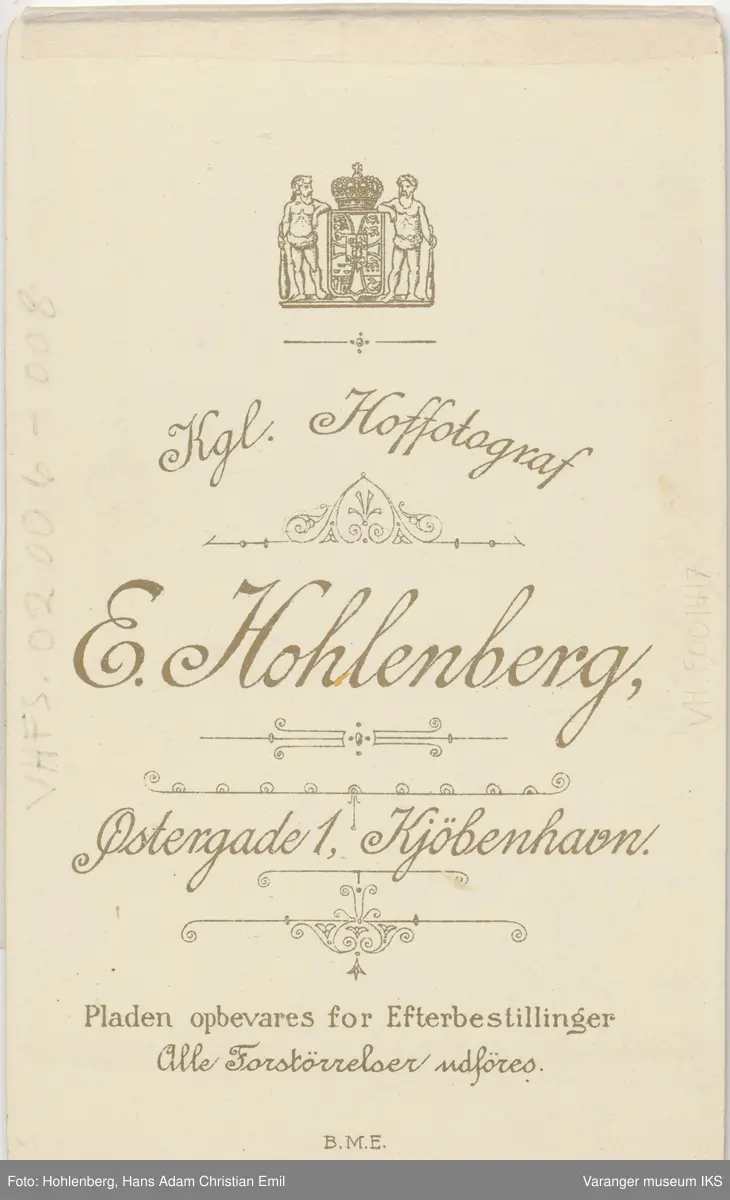 Kgl. Hoffotograf
E. Hohlenberg,
Østergade 1, Kjöbenhavn.
Pladen opbevares for Efterbestillinger
Alle Forstörrelser udföres.
B.M.E.
VHFS.02006-008
Foto: Hohlenberg, Hans Adam Christian Emil
Varanger museum IKS